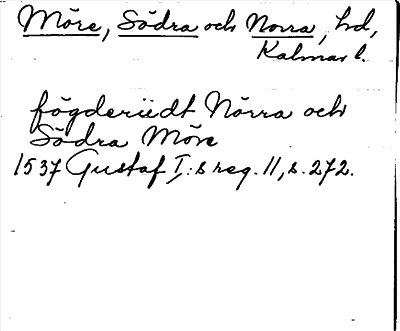 Möre, Södra och Norra, hd,
Kalmar l.
fögderiedt Nörra och
Södra Möre
1537 Gustaf I:s reg. 11, s. 272.